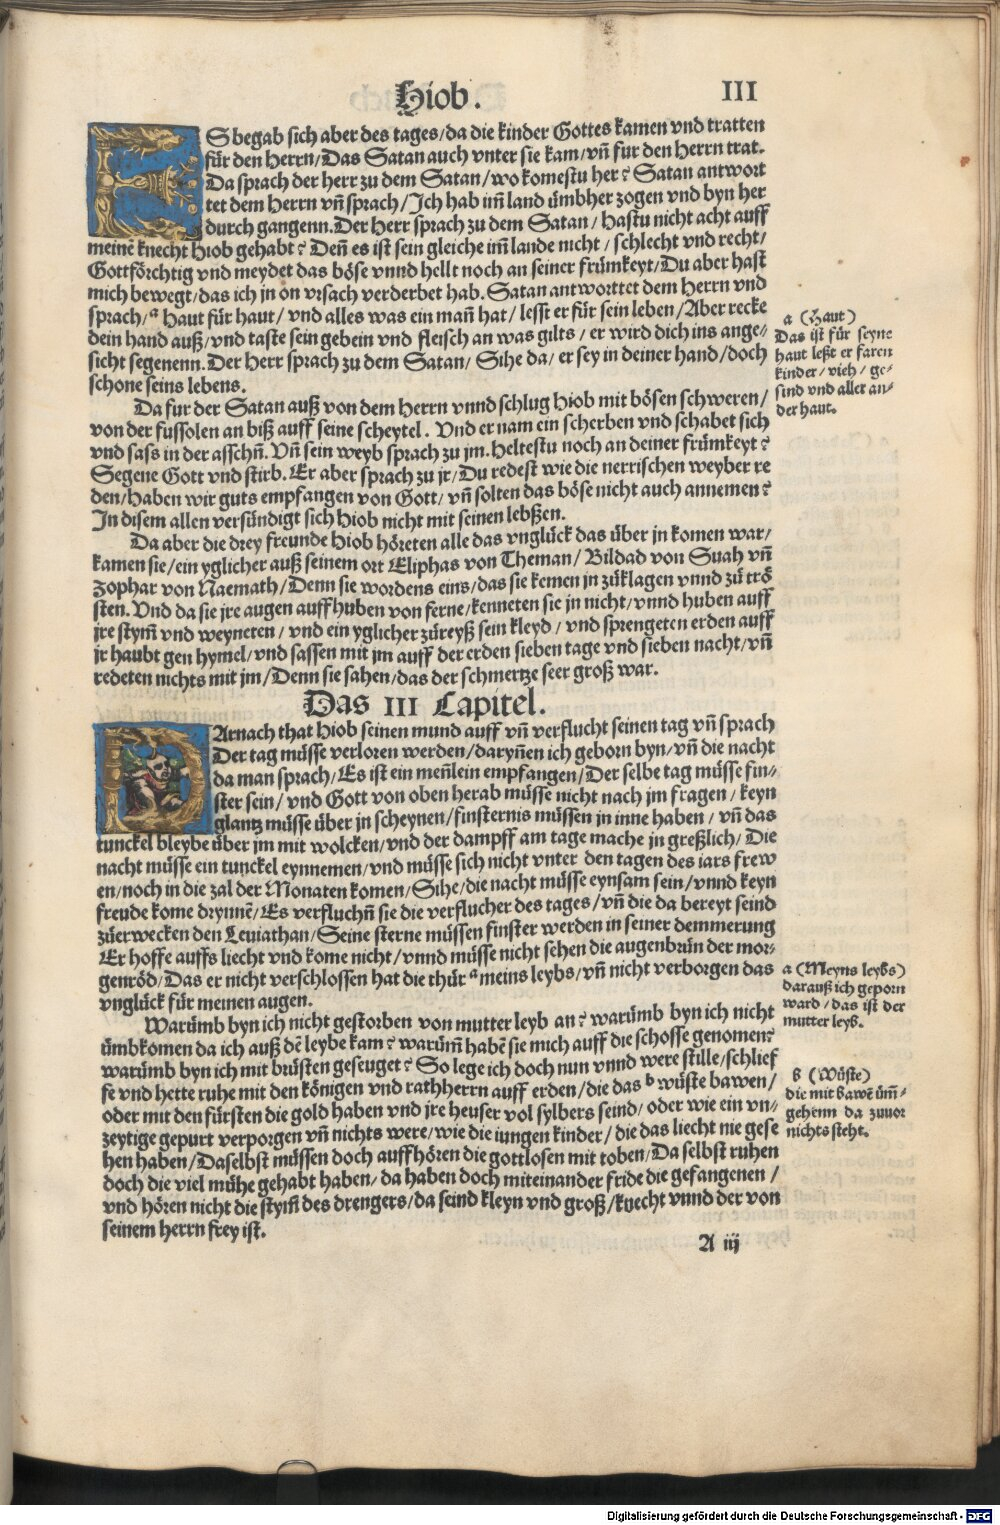 Hiob.
III
ES begab sich aber des tages/da die kinder Gottes kamen vnd tratten
für den Herrn/Das Satan auch vnter sie kam/vñ fur den Herrn trat.
Da sprach der herr zu dem Satan/wo komestu her? Satan antwort
tet dem Herrn vñ sprach/Ich hab im̃ land ümbher zogen vnd byn her
durch gangenn.Der Herr sprach zu dem Satan/Hastu nicht acht auff
meinẽ knecht Hiob gehabt? Deñ es ist sein gleiche im̃ lande nicht/schlecht vnd recht/
Gottförchtig vnd meydet das böse vnnd hellt noch an seiner frümkeyt/Du aber hast
mich bewegt/das ich jn on vrsach verderbet hab.Satan antworttet dem Herrn vnd
sprach/ᵃ Haut für haut/vnd alles was ein mañ hat/lesst er für sein leben/Aber recke
dein hand auß/vnd taste sein gebein vnd fleisch an was gilts/er wird dich ins ange-
sicht segenenn.Der Herr sprach zu dem Satan/Sihe da/er sey in deiner hand/doch
schone seins lebens.
a (Haut)
Das ist für seyne
haut leßt er faren
kinder/vieh/ge-
sind vnd aller an-
der haut.
Da fur der Satan auß von dem Herrn vnnd schlug Hiob mit bösen schweren/
von der fussolen an biß auff seine scheytel. Vnd er nam ein scherben vnd schabet sich
vnd sass in der asschñ.Vñ sein weyb sprach zu jm.Heltestu noch an deiner frümkeyt?
Segene Gott vnd stirb.Er aber sprach zu jr/Du redest wie die nerrischen weyber re
den/haben wir guts empfangen von Gott/vñ solten das böse nicht auch annemen?
In disem allen versündigt sich Hiob nicht mit seinen lebßen.
Da aber die drey freunde Hiob höreten alle das vnglück das über jn komen war/
kamen sie/ein yglicher auß seinem ort Eliphas von Theman/Bildad von Suah vñ
Zophar von Naemath/Denn sie wordens eins/das sie kemen jn zůklagen vnnd zů trö
sten.Vnd da sie jre augen auffhuben von ferne/kenneten sie jn nicht/vnnd huben auff
jre stym̃ vnd weyneten/vnd ein yglicher zůreyß sein kleyd/vnd sprengeten erden auff
jr haubt gen hymel/vnd sassen mit jm auff der erden sieben tage vnd sieben nacht/vñ
redeten nichts mit jm/Denn sie sahen/das der schmertze seer groß war.
Das III Capitel.
DArnach that Hiob seinen mund auff vñ verflucht seinen tag vñ sprach
Der tag müsse verloren werden/daryñen ich geborn byn/vñ die nacht
da man sprach/Es ist ein meñlein empfangen/Der selbe tag müsse fin-
ster sein/vnd Gott von oben herab müsse nicht nach jm fragen/keyn
glantz müsse über jn scheynen/finsternis müssen jn inne haben/vñ das
tunckel bleybe über jm mit wolcken/vnd der dampff am tage mache jn greßlich/Die
nacht müsse ein tunckel eynnemen/vnd müsse sich nicht vnter den tagen des iars frew
en/noch in die zal der Monaten komen/Sihe/die nacht müsse eynsam sein/vnnd keyn
freude kome drynnẽ/Es verfluchñ sie die verflucher des tages/vñ die da bereyt seind
zůerwecken den Leuiathan/Seine sterne müssen finster werden in seiner demmerung
Er hoffe auffs liecht vnd kome nicht/vnnd müsse nicht sehen die augenbrün der mor-
genröd/Das er nicht verschlossen hat die thür ᵃ meins leybs/vñ nicht verborgen das
vnglück für meinen augen.
a (Meyns leybs)
darauß ich geporn
ward/das ist der
mutter leyb.
Warümb byn ich nicht gestorben von mutter leyb an? warümb byn ich nicht
ümbkomen da ich auß dẽ leybe kam? warüm̃ habẽ sie mich auff die schosse genomen?
warümb byn ich mit brüsten geseuget? So lege ich doch nun vnnd were stille/schlief
fe vnd hette ruhe mit den königen vnd rathherrn auff erden/die das ᵇ wüste bawen/
oder mit den fürsten die gold haben vnd jre heuser vol sylbers seind/oder wie ein vn-
zeytige gepurt verporgen vñ nichts were/wie die iungen kinder/die das liecht nie gese
hen haben/Daselbst müssen doch auffhören die gottlosen mit toben/Da selbst ruhen
doch die viel mühe gehabt haben/da haben doch miteinander fride die gefangenen/
vnd hören nicht die stym̃ des drengers/da seind kleyn vnd groß/knecht vnnd der von
seinem herrn frey ist.
b (Wüste)
die mit bawẽ üm̃-
gehenn da zuuor
nichts steht.
A iij
Digitalisierung gefördert durch die Deutsche Forschungsgemeinschaft - DFG